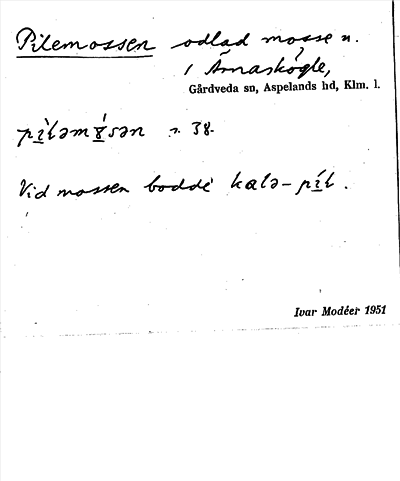 Pilemossen odlad mosse n.
i Ärnaskögle,
Gårdveda sn, Aspelands hd, Klm. l.
pìləmɤ́sən s. 38.
Vid mossen bodde kalə-píl.
Ivar Modéer 1951